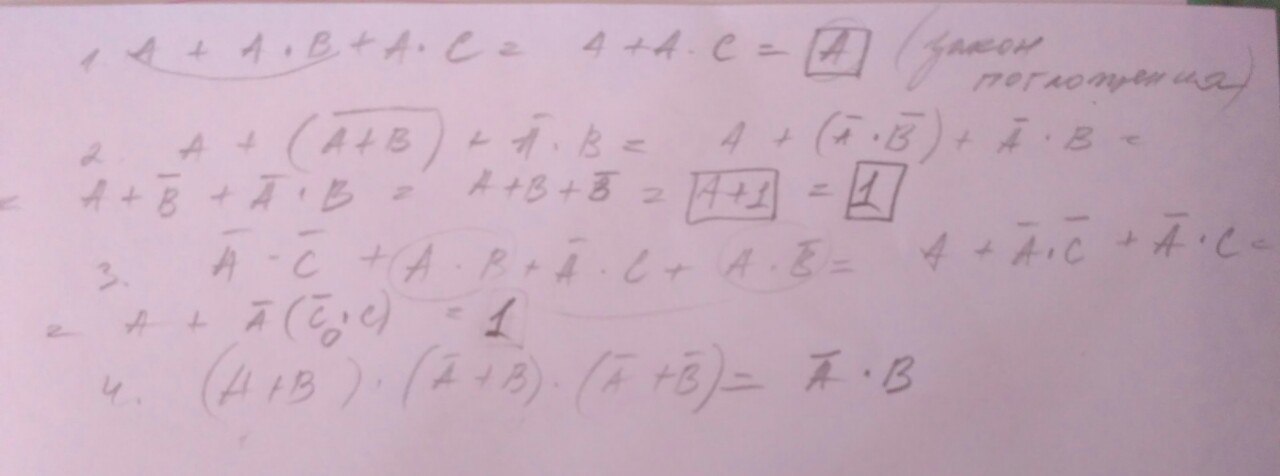 1. A + A · B + A · C = A + A · C = A (закон
поглощения)
2. A + (A̅+̅B̅) + A̅ · B = A + (A̅ · B̅) + A̅ · B =
= A + B̅ + A̅ · B = A + B + B̅ = A+1 = 1
3. A̅ · C̅ + A · B + A̅ · C + A · B̅ = A + A̅ · C̅ + A̅ · C =
= A + A̅ (C̅ · C) = 1
4. (A+B) · (A̅+B) · (A̅+B̅) = A̅ · B